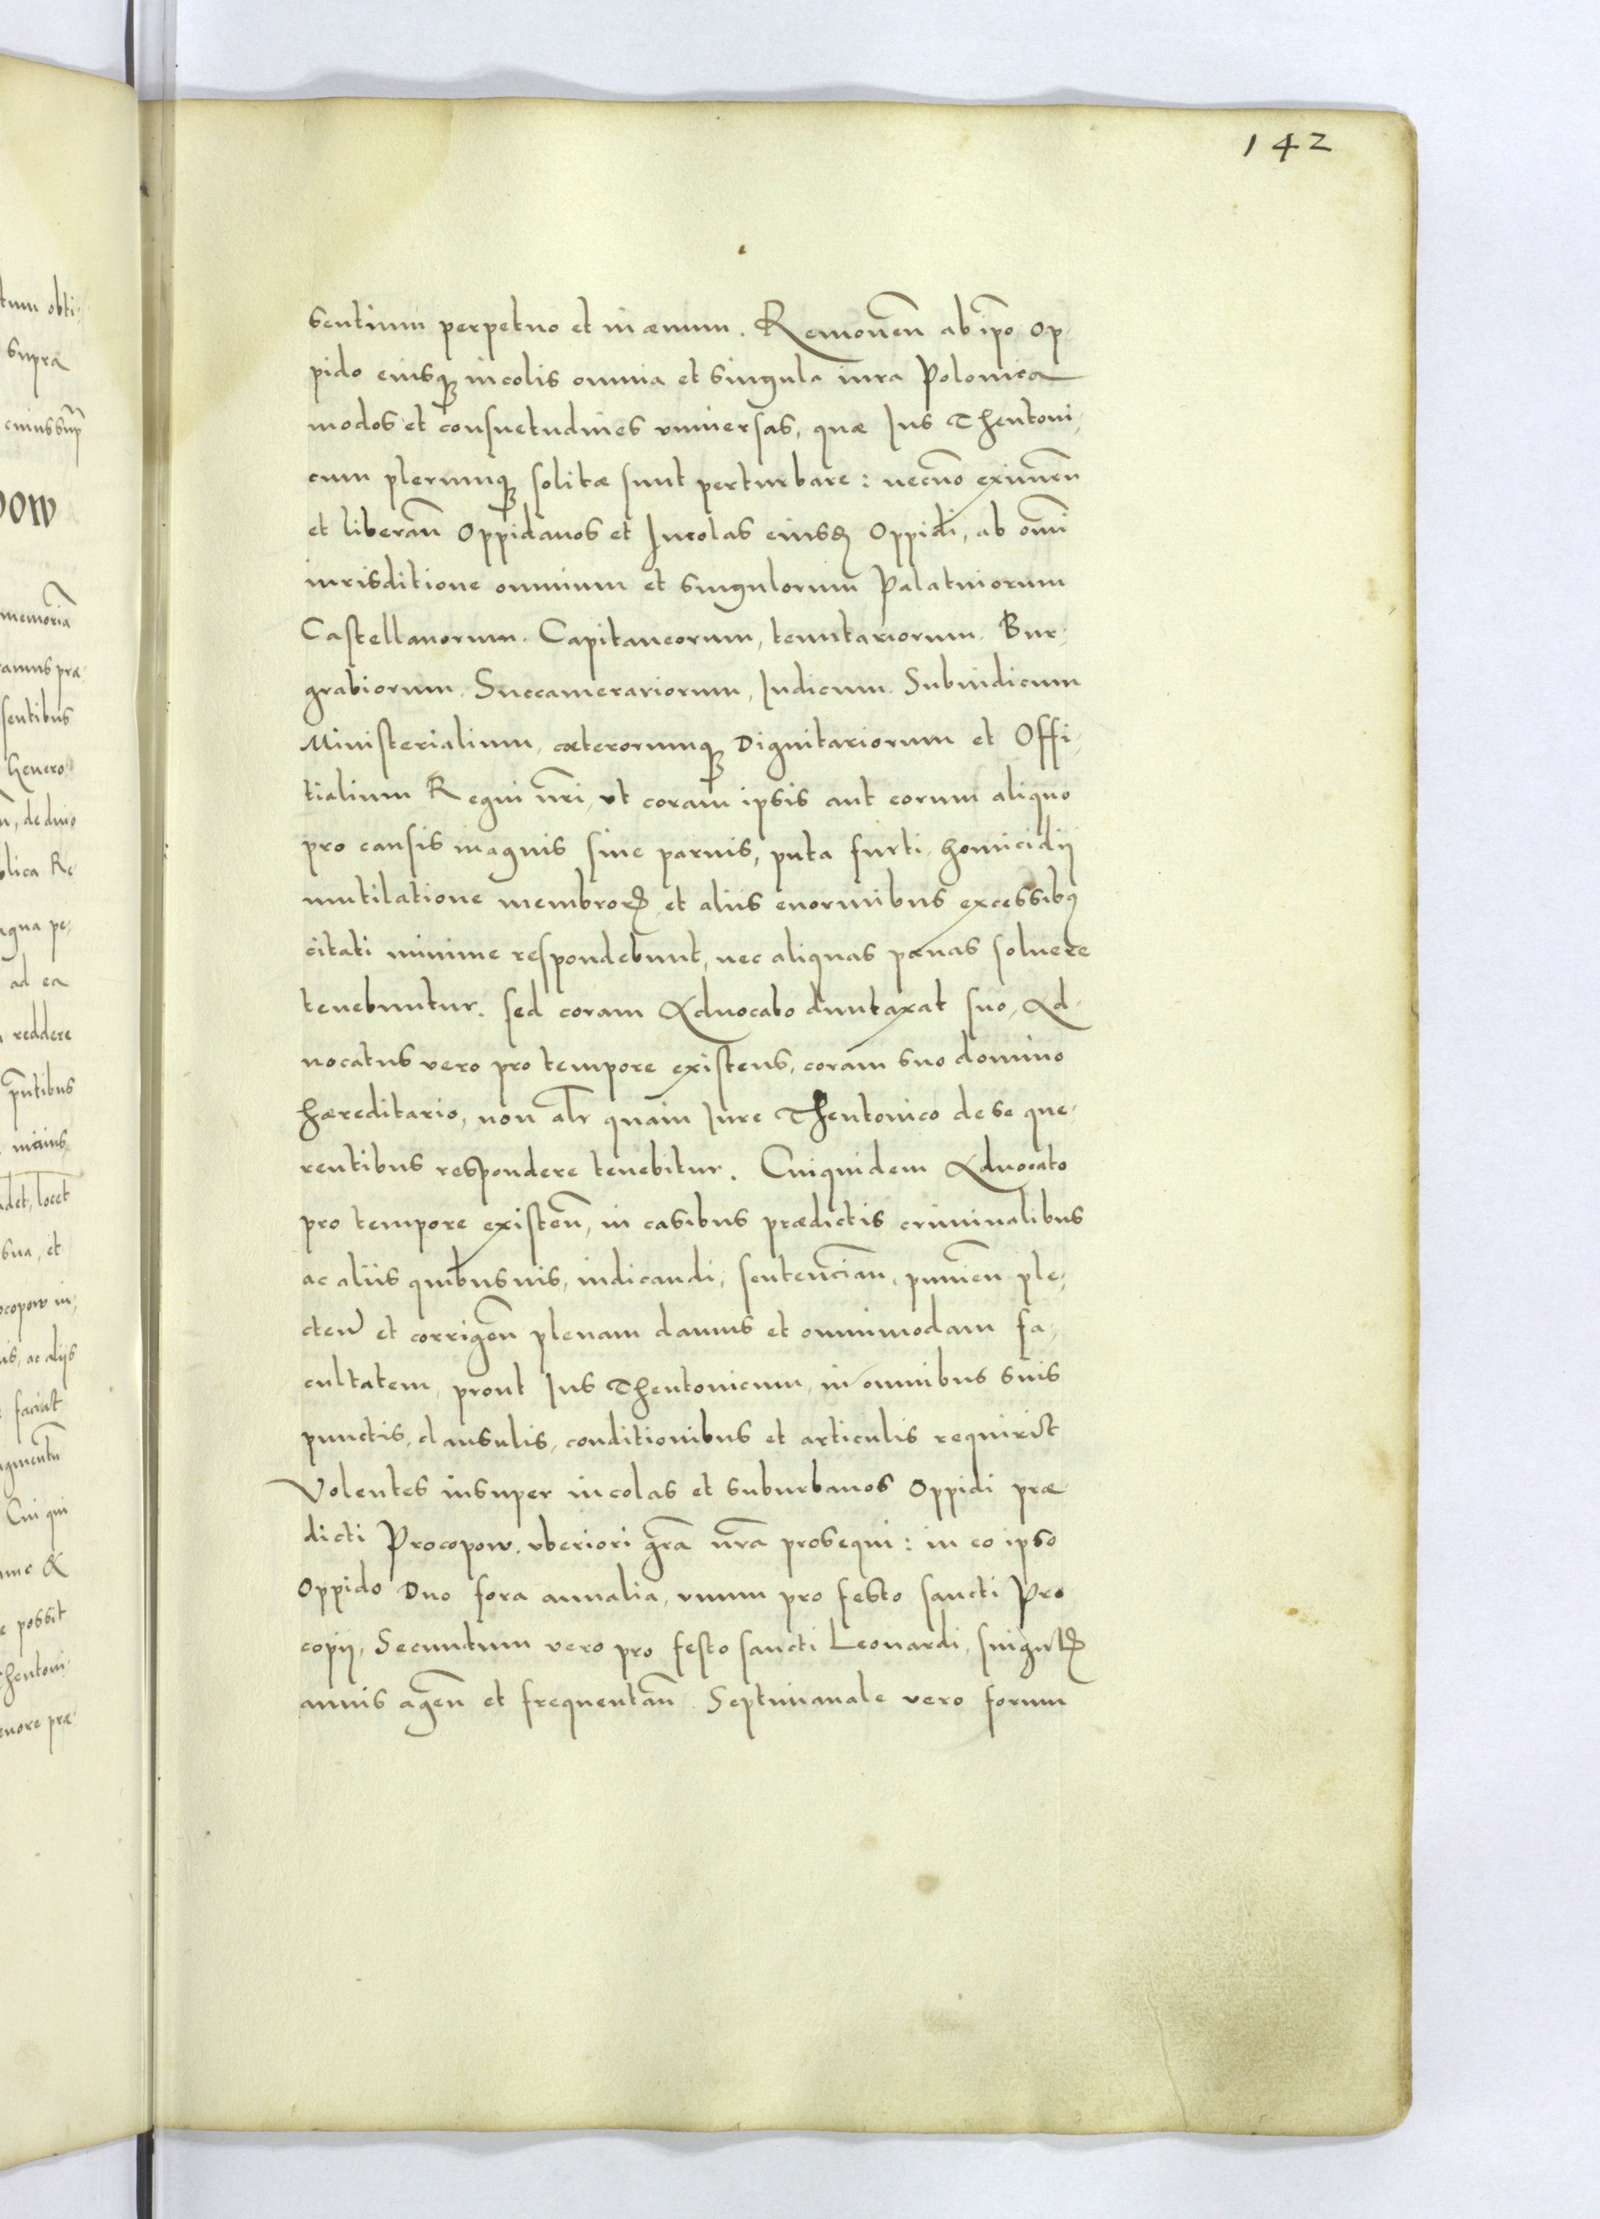 142
sentium perpetuo et in æuum. Remouen̄ ab ip̄o op-
pido eiusq; incolis omnia et singula iura Polonica
modos et consuetudines vniuersas, quæ Ius Theutoni-
cum plerumq; solitæ sunt perturbare: necnō eximen̄
et liberan̄ Oppidanos et Incolas eiusđ Oppidi, ab om̄i
iurisditione omnium et singulorum Palatinorum
Castellanorum. Capitaneorum, tenutariorum. Bur-
grabiorum. Succamerariorum, Iudicum. Subiudicum
Ministerialium, cæterorumq; Dignitariorum et Offi-
tialium Regni nr̄i, vt coram ipsis aut eorum aliquo
pro causis magnis siue paruis, puta furti, homicidij
mutilatione membroꝝ, et aliis enormibus excessibꝰ
citati minime respondebunt, nec aliquas pœnas soluere
tenebuntur. sed coram Aduocato duntaxat suo, Ad-
uocatus vero pro tempore existens, coram suo domino
hæreditario, non alr̄ quam Iure Theutonico de se que-
rentibus respondere tenebitur. Cuiquidem Aduocato
pro tempore existen̄, in casibus prædictis criminalibus
ac aliis quibusuis, iudicandi, sentencian̄, punien̄ ple-
cten̄ et corrigen̄ plenam damus et omnimodam fa-
cultatem, prout Ius Theutonicum, in omnibus suis
punctis, clausulis, conditionibus et articulis requirit
Volentes insuper incolas et suburbanos Oppidi præ
dicti Procopow. vberiori gr̄a nr̄a prosequi: in eo ipso
Oppido Duo fora annalia, vnum pro festo sancti Pro
copij, Secundum vero pro festo sancti Leonardi, singulꝭ
annis agen̄ et frequentan̄. Septimanale vero forum